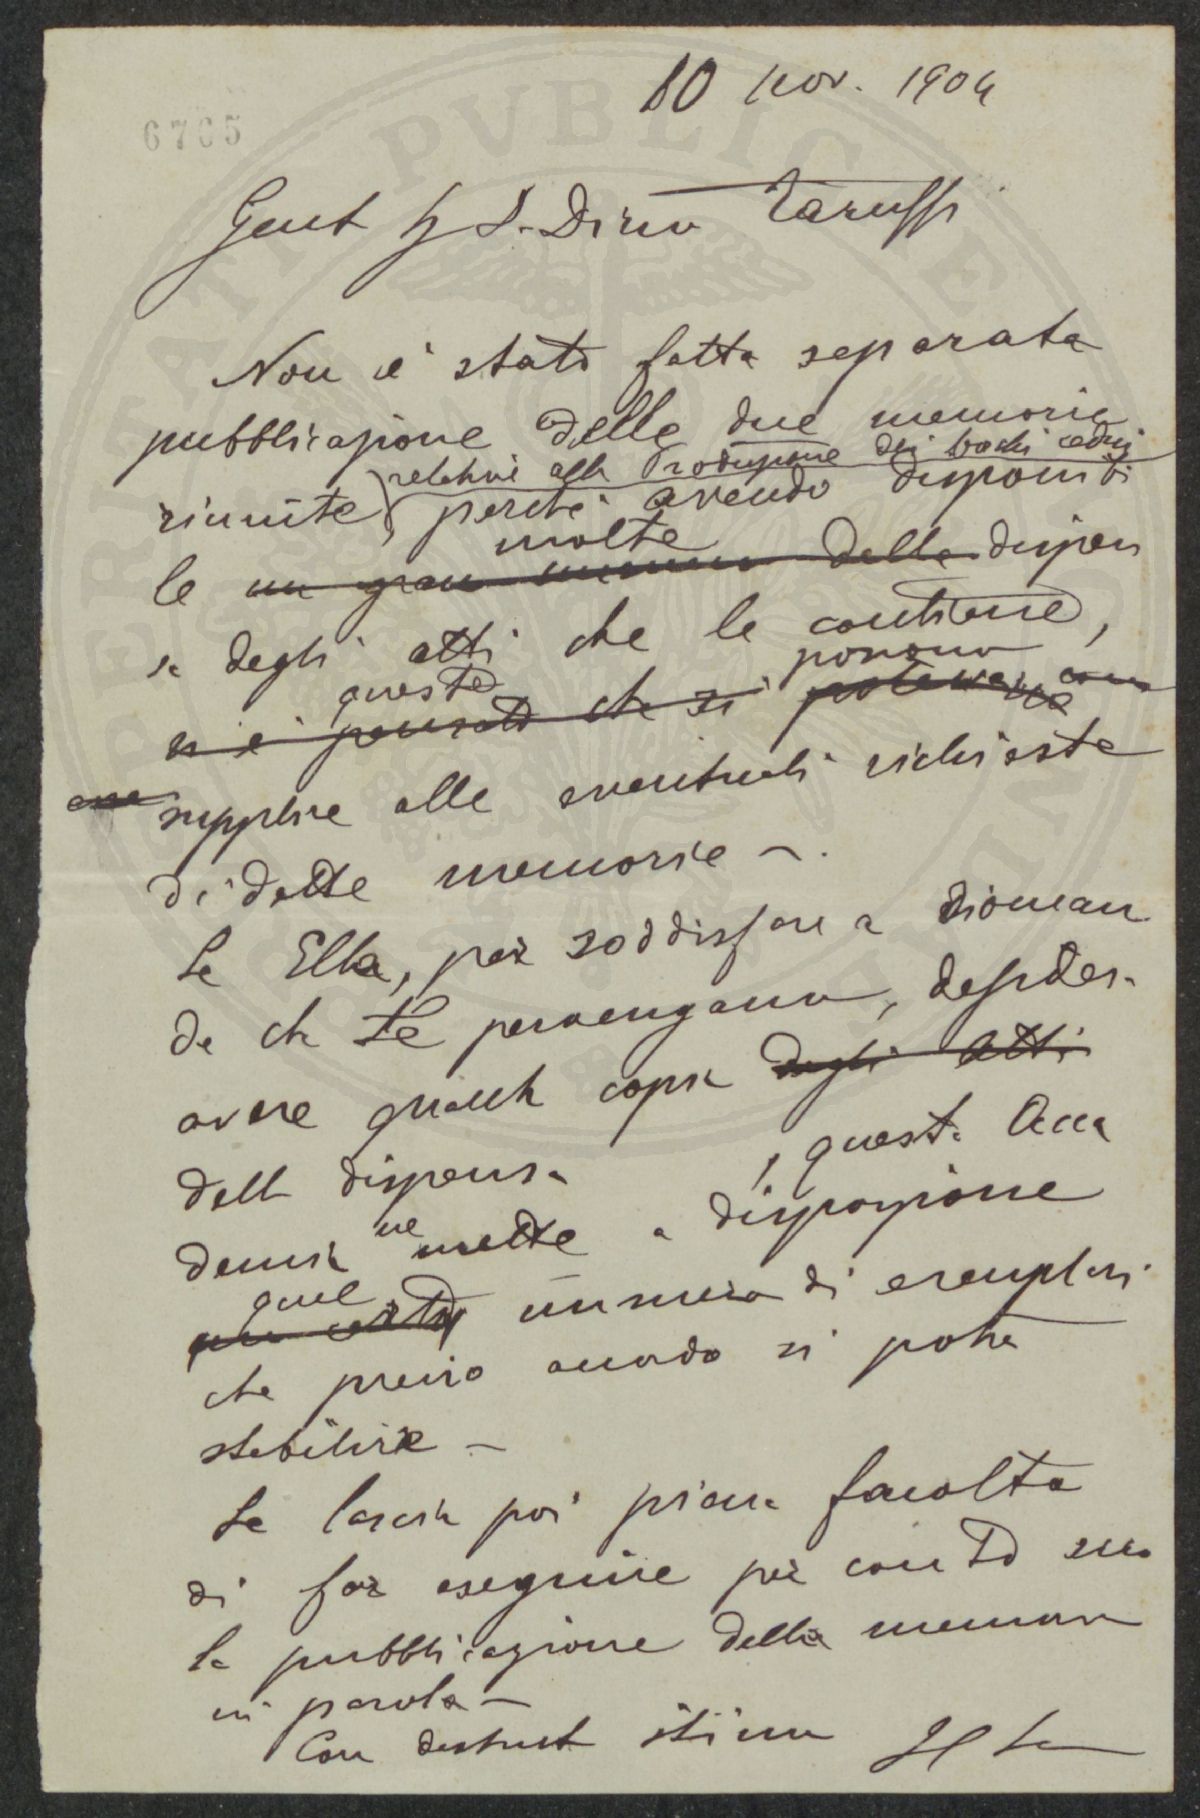 10 nov. 1904
6765
Gent Sig. Dino Taruffi
Non è stata fatta separata
pubblicazione delle due memorie
relative alla Produzione dei boschi cedui
riunite, perchè avendo disponibi
molte
le un gran numero delle dispen
se degli atti che le contiene,
queste possono
si è pensato che si potesse
supplire alle eventuali richieste
di dette memorie -.
Se Ella, per soddisfare a doman
de che Le pervengano, desider
avere qualche copia degli Atti
della dispensa, questa Acca
demia ne mette a disposizione
quel
un certo numero di esemplari
che previo accordo si potrà
stabilire -
Le lascia poi piena facoltà
di far eseguire per conto suo
la pubblicazione della memoria
in parola -
Con distinta stima Il Se